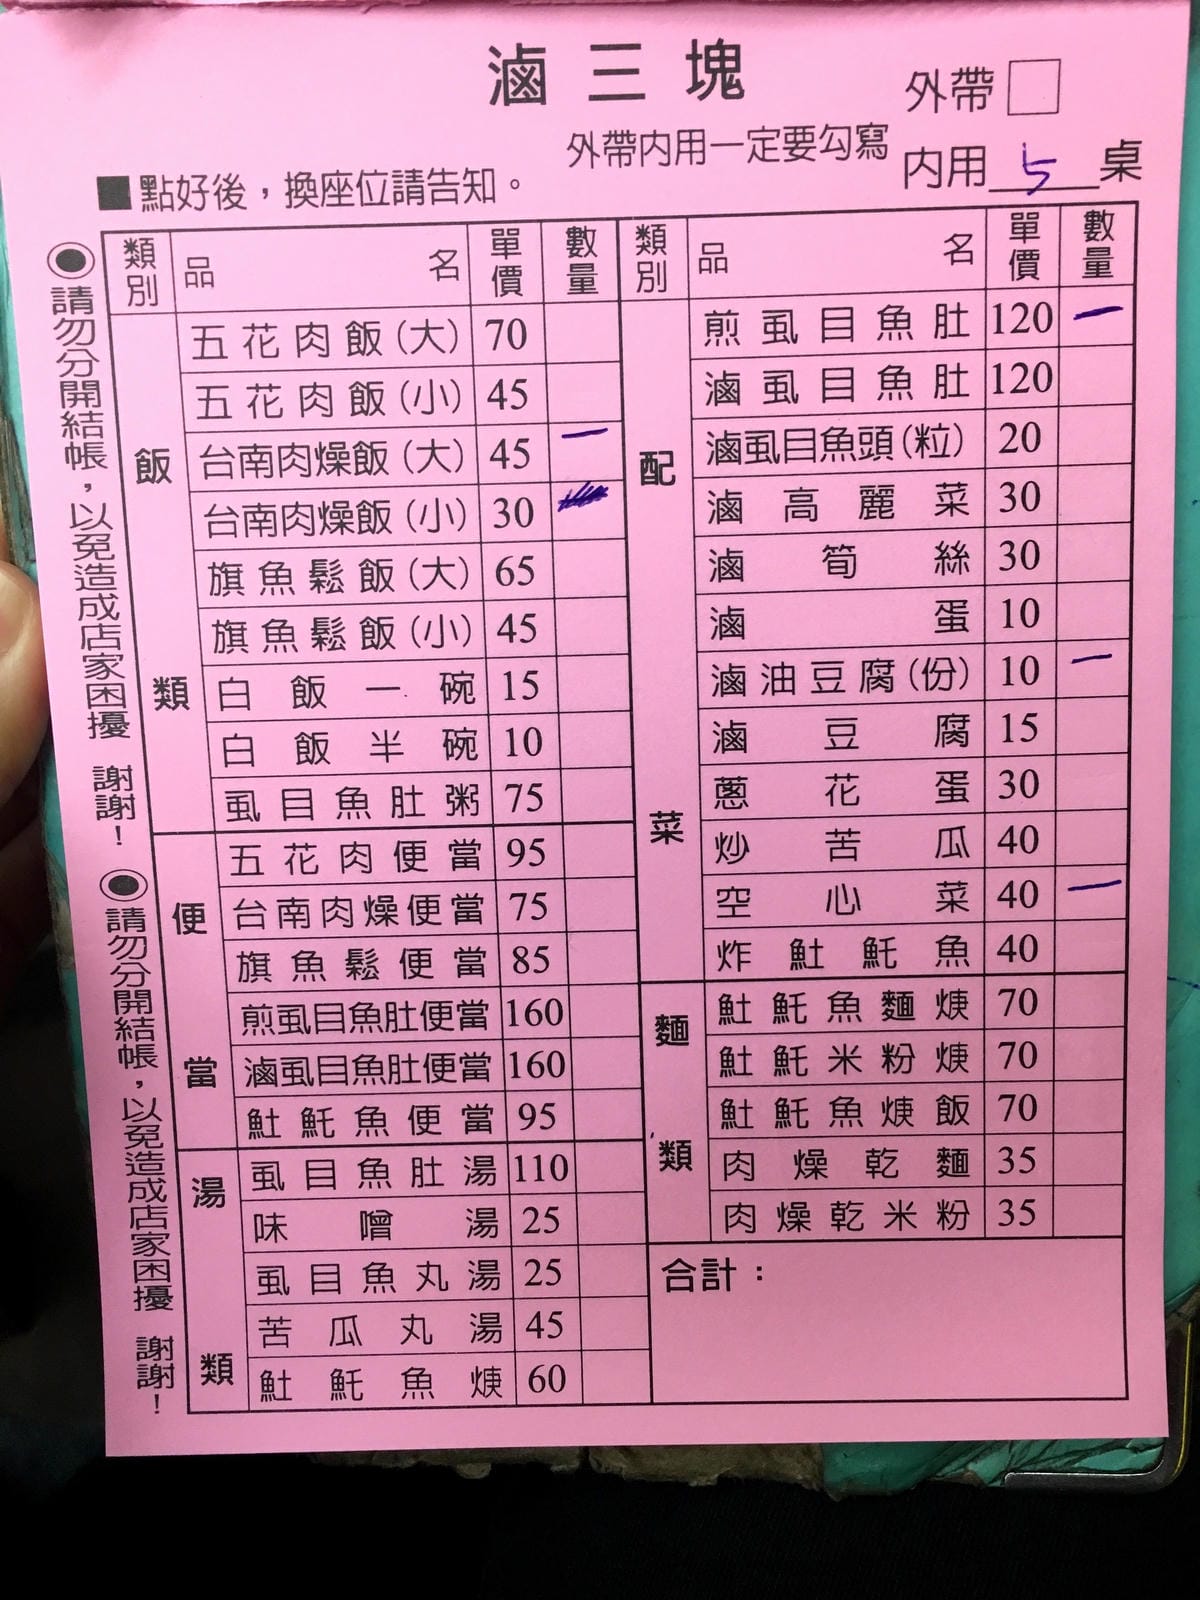 滷三塊
外帶
外帶内用一定要勾寫
内用 5 桌
■點好後，換座位請告知。
請勿分開結帳，以免造成店家困擾 謝謝！
請勿分開結帳，以免造成店家困擾 謝謝！
類別 品名 單價 數量
飯類
五花肉飯(大) 70
五花肉飯(小) 45
台南肉燥飯(大) 45 一
台南肉燥飯(小) 30
旗魚鬆飯(大) 65
旗魚鬆飯(小) 45
白飯一碗 15
白飯半碗 10
虱目魚肚粥 75
便當
五花肉便當 95
台南肉燥便當 75
旗魚鬆便當 85
煎虱目魚肚便當 160
滷虱目魚肚便當 160
魠魚便當 95
湯類
虱目魚肚湯 110
味噌湯 25
虱目魚丸湯 25
苦瓜丸湯 45
魠魚焿 60
類別 品名 單價 數量
配菜
煎虱目魚肚 120 一
滷虱目魚肚 120
滷虱目魚頭(粒) 20
滷高麗菜 30
滷筍絲 30
滷蛋 10
滷油豆腐(份) 10 一
滷豆腐 15
蔥花蛋 30
炒苦瓜 40
空心菜 40 一
炸魠魚 40
麵類
魠魚麵焿 70
魠米粉焿 70
魠魚焿飯 70
肉燥乾麵 35
肉燥乾米粉 35
合計：